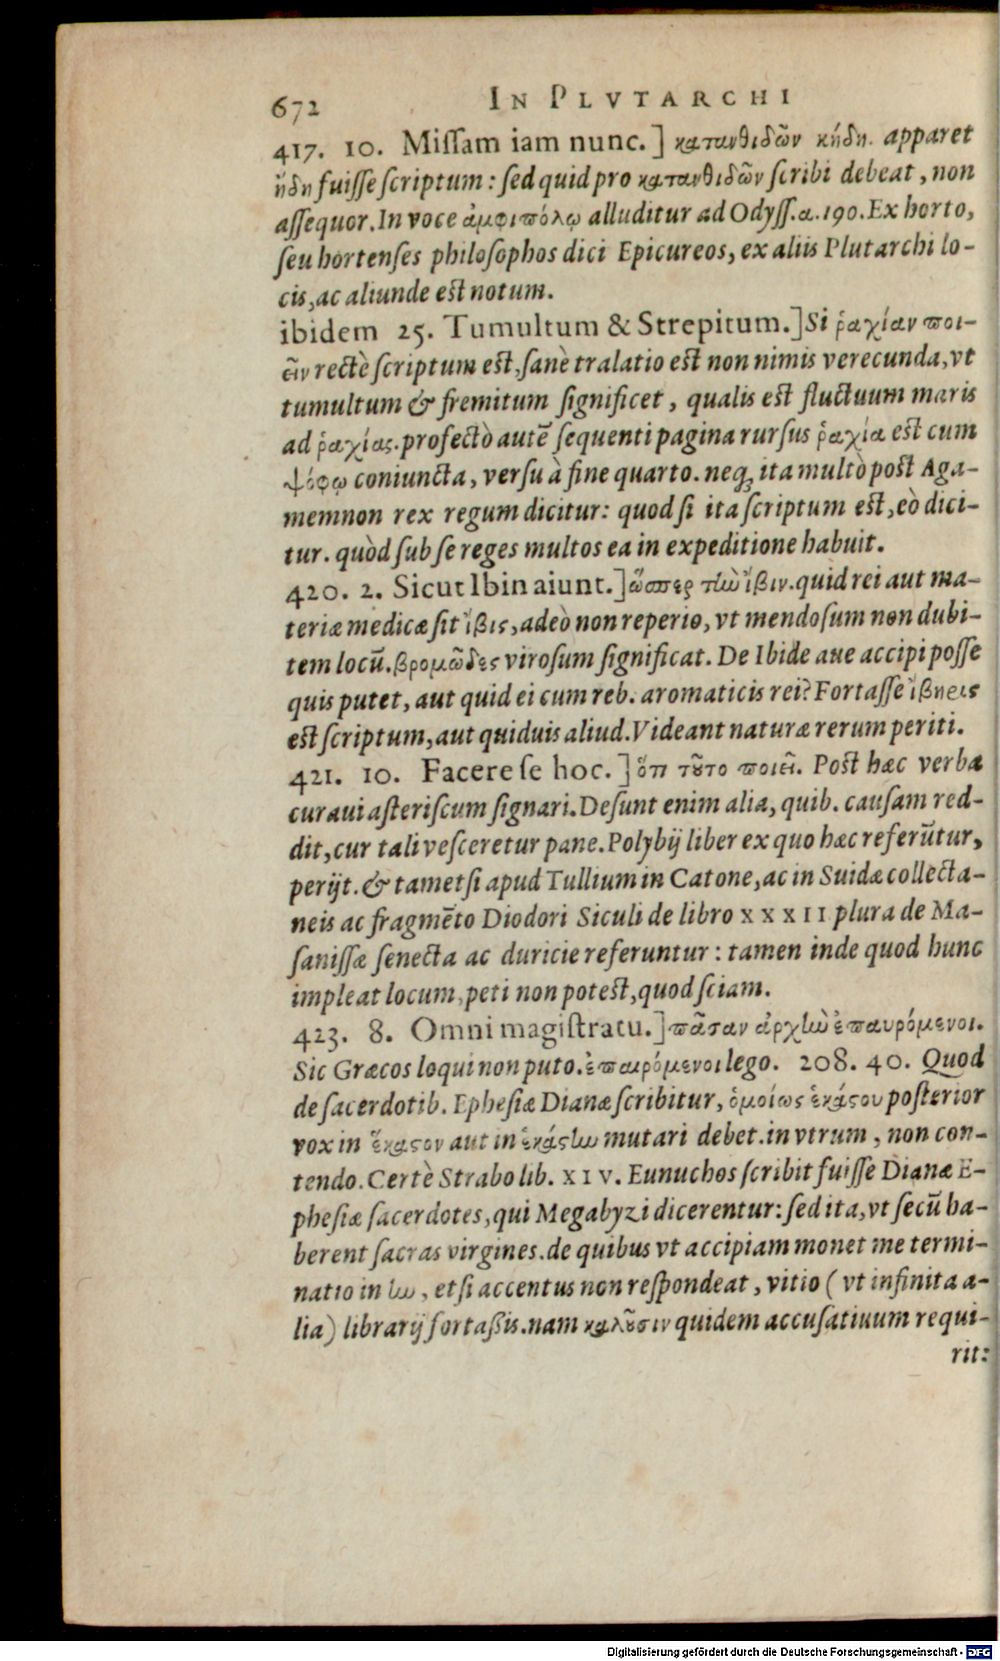 672 IN PLVTARCHI
417. 10. Miſſam iam nunc.] κατανθιδῶν κήδη. apparet
ἤδη fuiſſe ſcriptum: ſed quid pro κατανθιδῶν ſcribi debeat, non
aſſequor. In voce ἀμφιπόλῳ alluditur ad Odyſſ. α. 190. Ex horto,
ſeu hortenſes philoſophos dici Epicureos, ex aliis Plutarchi lo-
cis, ac aliunde eſt notum.
ibidem 25. Tumultum & Strepitum.] Si ῥαχίαν ποι-
εῖν rectè ſcriptum eſt, ſanè tralatio eſt non nimis verecunda, vt
tumultum & fremitum ſignificet, qualis eſt fluctuum maris
ad ῥαχίας. profectò autē ſequenti pagina rurſus ῥαχία eſt cum
ψόφῳ coniuncta, verſu à fine quarto. neq; ita multò pòſt Aga-
memnon rex regum dicitur: quod ſi ita ſcriptum eſt, eò dici-
tur. quòd ſub ſe reges multos ea in expeditione habuit.
420. 2. Sicut Ibin aiunt.] ὥσπερ τὴν ἴβιν. quid rei aut ma-
teriæ medicæ ſit ἴβις, adeò non reperio, vt mendoſum non dubi-
tem locū. βρομῶδες viroſum ſignificat. De Ibide aue accipi poſſe
quis putet, aut quid ei cum reb. aromaticis rei? Fortaſſe ἴβηεις
eſt ſcriptum, aut quiduis aliud. Videant naturæ rerum periti.
421. 10. Facere ſe hoc.] ὅτι τοῦτο ποιεῖ. Poſt hæc verba
curaui aſteriſcum ſignari. Deſunt enim alia, quib. cauſam red-
dit, cur tali veſceretur pane. Polybij liber ex quo hæc referūtur,
perijt. & tametſi apud Tullium in Catone, ac in Suidæ collecta-
neis ac fragmēto Diodori Siculi de libro XXXII plura de Ma-
ſaniſſæ ſenecta ac duricie referuntur: tamen inde quod hunc
impleat locum, peti non poteſt, quod ſciam.
423. 8. Omni magiſtratu.] πᾶσαν ἀρχὴν ἐπαυρόμενοι.
Sic Græcos loqui non puto. ἐπαιρόμενοι lego. 208. 40. Quod
de ſacerdotib. Epheſiæ Dianæ ſcribitur, ὁμοίως ἑκάστου poſterior
vox in ἕκαστον aut in ἑκάστην mutari debet. in vtrum, non con-
tendo. Certè Strabo lib. XIV. Eunuchos ſcribit fuiſſe Dianæ E-
pheſiæ ſacerdotes, qui Megabyzi dicerentur: ſed ita, vt ſecū ha-
berent ſacras virgines. de quibus vt accipiam monet me termi-
natio in ην, etſi accentus non reſpondeat, vitio (vt infinita a-
lia) librarij fortaßis. nam καλοῦσιν quidem accuſatiuum requi-
rit:
Digitalisierung gefördert durch die Deutsche Forschungsgemeinschaft - DFG